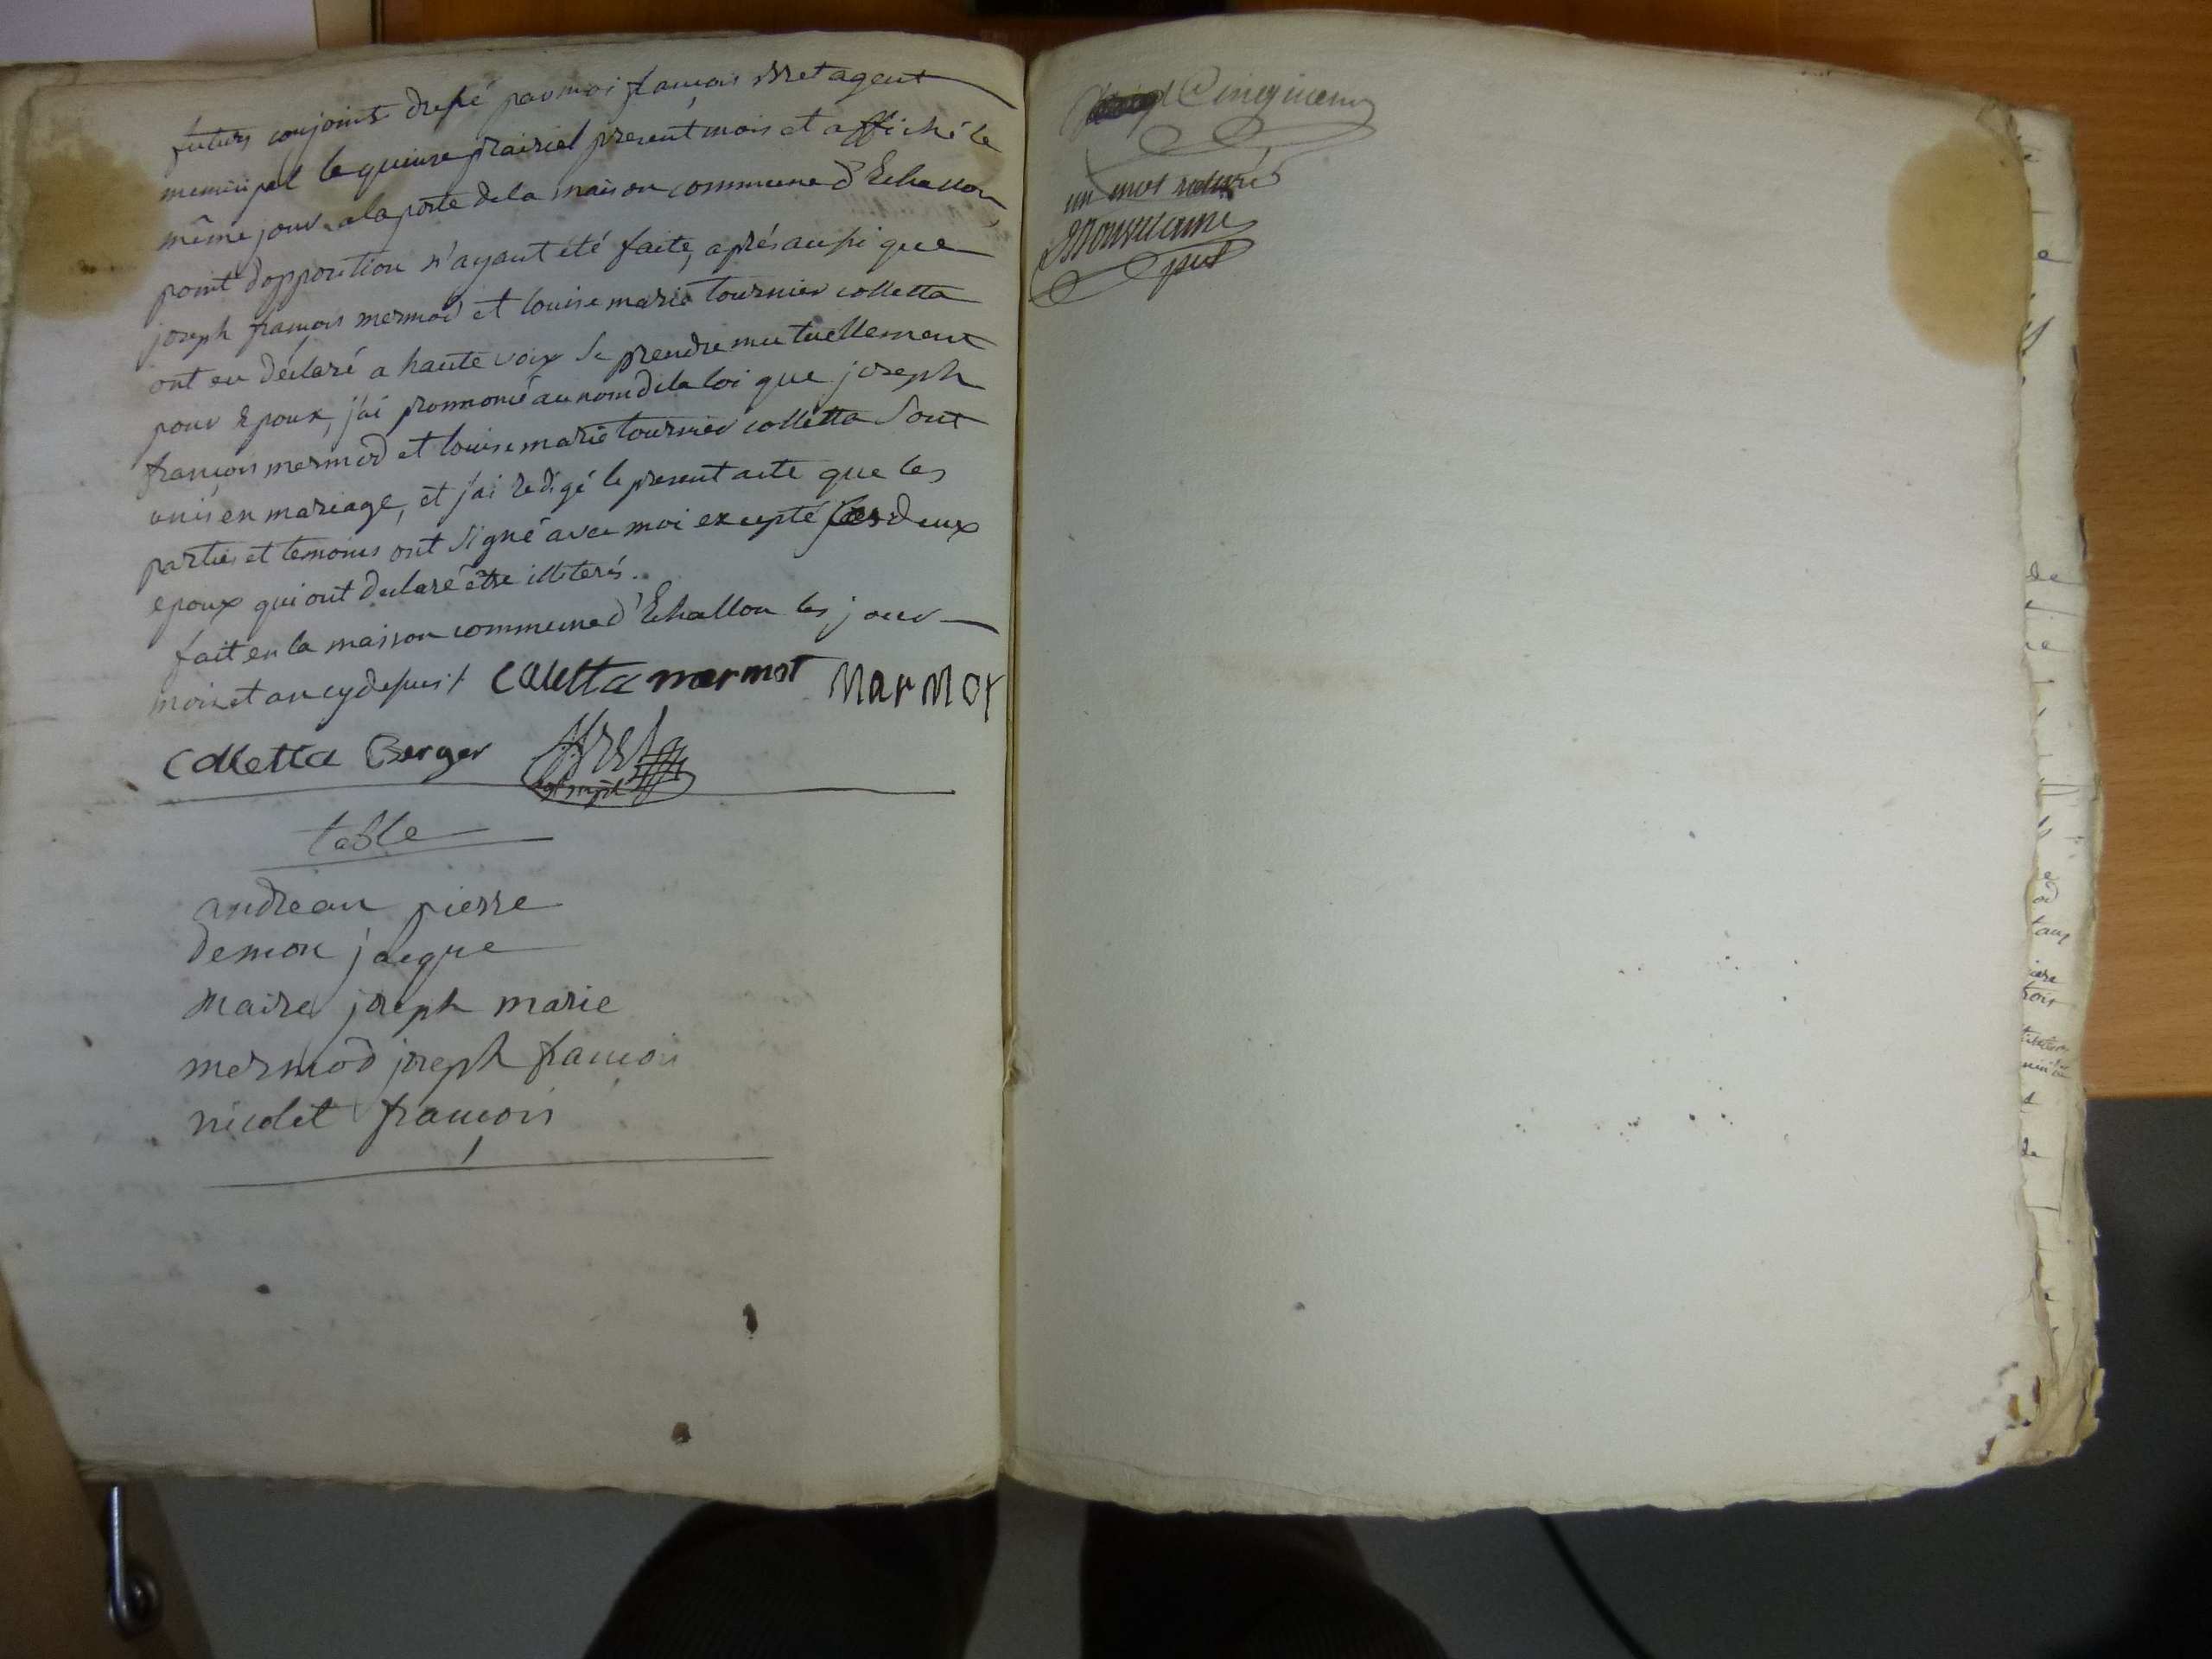 futurs conjoints dressé par moi françois Bret agent
municipal le quinze prairial present mois et affiché le
même jour a la porte de la maison commune d'Echallon,
point d'opposition n'ayant été faite, après aussi que
joseph françois mermod et louise marie tournier colletta
ont eu déclaré a haute voix se prendre mutuellement
pour Epoux, j'ai prononcé au nom de la loi que joseph
françois mermod et louise marie tournier colletta sont
unis en mariage, et j'ai redigé le present acte que les
parties et temoins ont signé avec moi excepté les deux
epoux qui ont declaré être illiterés.
fait en la maison commune d'Echallon les jour
mois et an cy dessus
Colletta mermot MarMot
Colletta Berger
agt mpl
table
andrean pierre
demon jacque
Maire joseph marie
mermod joseph françois
nicolet françois
Cinquieme
un mot raturé